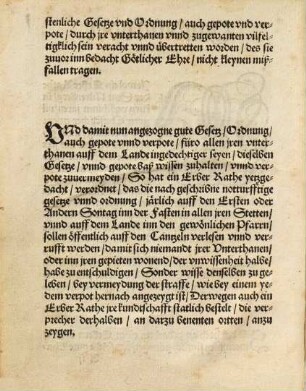 stenliche Gesetze vnd Ordnung / auch gepote vnd ver-
pote / durch jre vnterthanen vnnd zugewanten vilfel-
tigklich sein veracht vnnd übertretten worden / des sie
zuuor inn bedacht Götlicher Ehre / nicht kleynen miß-
fallen tragen.
VNd damit nun angezogne gute Gesetz / Ordnung /
auch gepote vnnd verpote / füro allen jren vnter-
thanen auff dem Lande ingedechtiger seyen / dieselben
Gesetze / vnnd gepote baß wissen zuhalten / vnnd ver-
pote zuuermeyden / So hat ein Erber Rathe yetzge-
dacht / verordnet / das die nach geschribne notturfftige
gesetze vnnd ordnung / järlich auff den Ersten oder
Andern Sontag inn der Fasten in allen jren Stetten /
vnnd auff dem Lande inn den gewönlichen Pfarrn /
sollen öffentlich auff den Cantzeln verlesen vnnd ver-
rufft werden / damit sich niemand jrer Vnterthanen /
oder inn jren gepieten wonend / der vnwissenheit halbe /
habe zu entschuldigen / Sonder wisse denselben zu ge-
leben / bey vermeydung der straffe / wie bey einem ye-
dem verpot hernach angezeygt ist / Derwegen auch ein
Erber Rathe jre kundtschafft statlich bestelt / die ver-
precher derhalben / an darzu benenten ortten / anzu
zeygen.